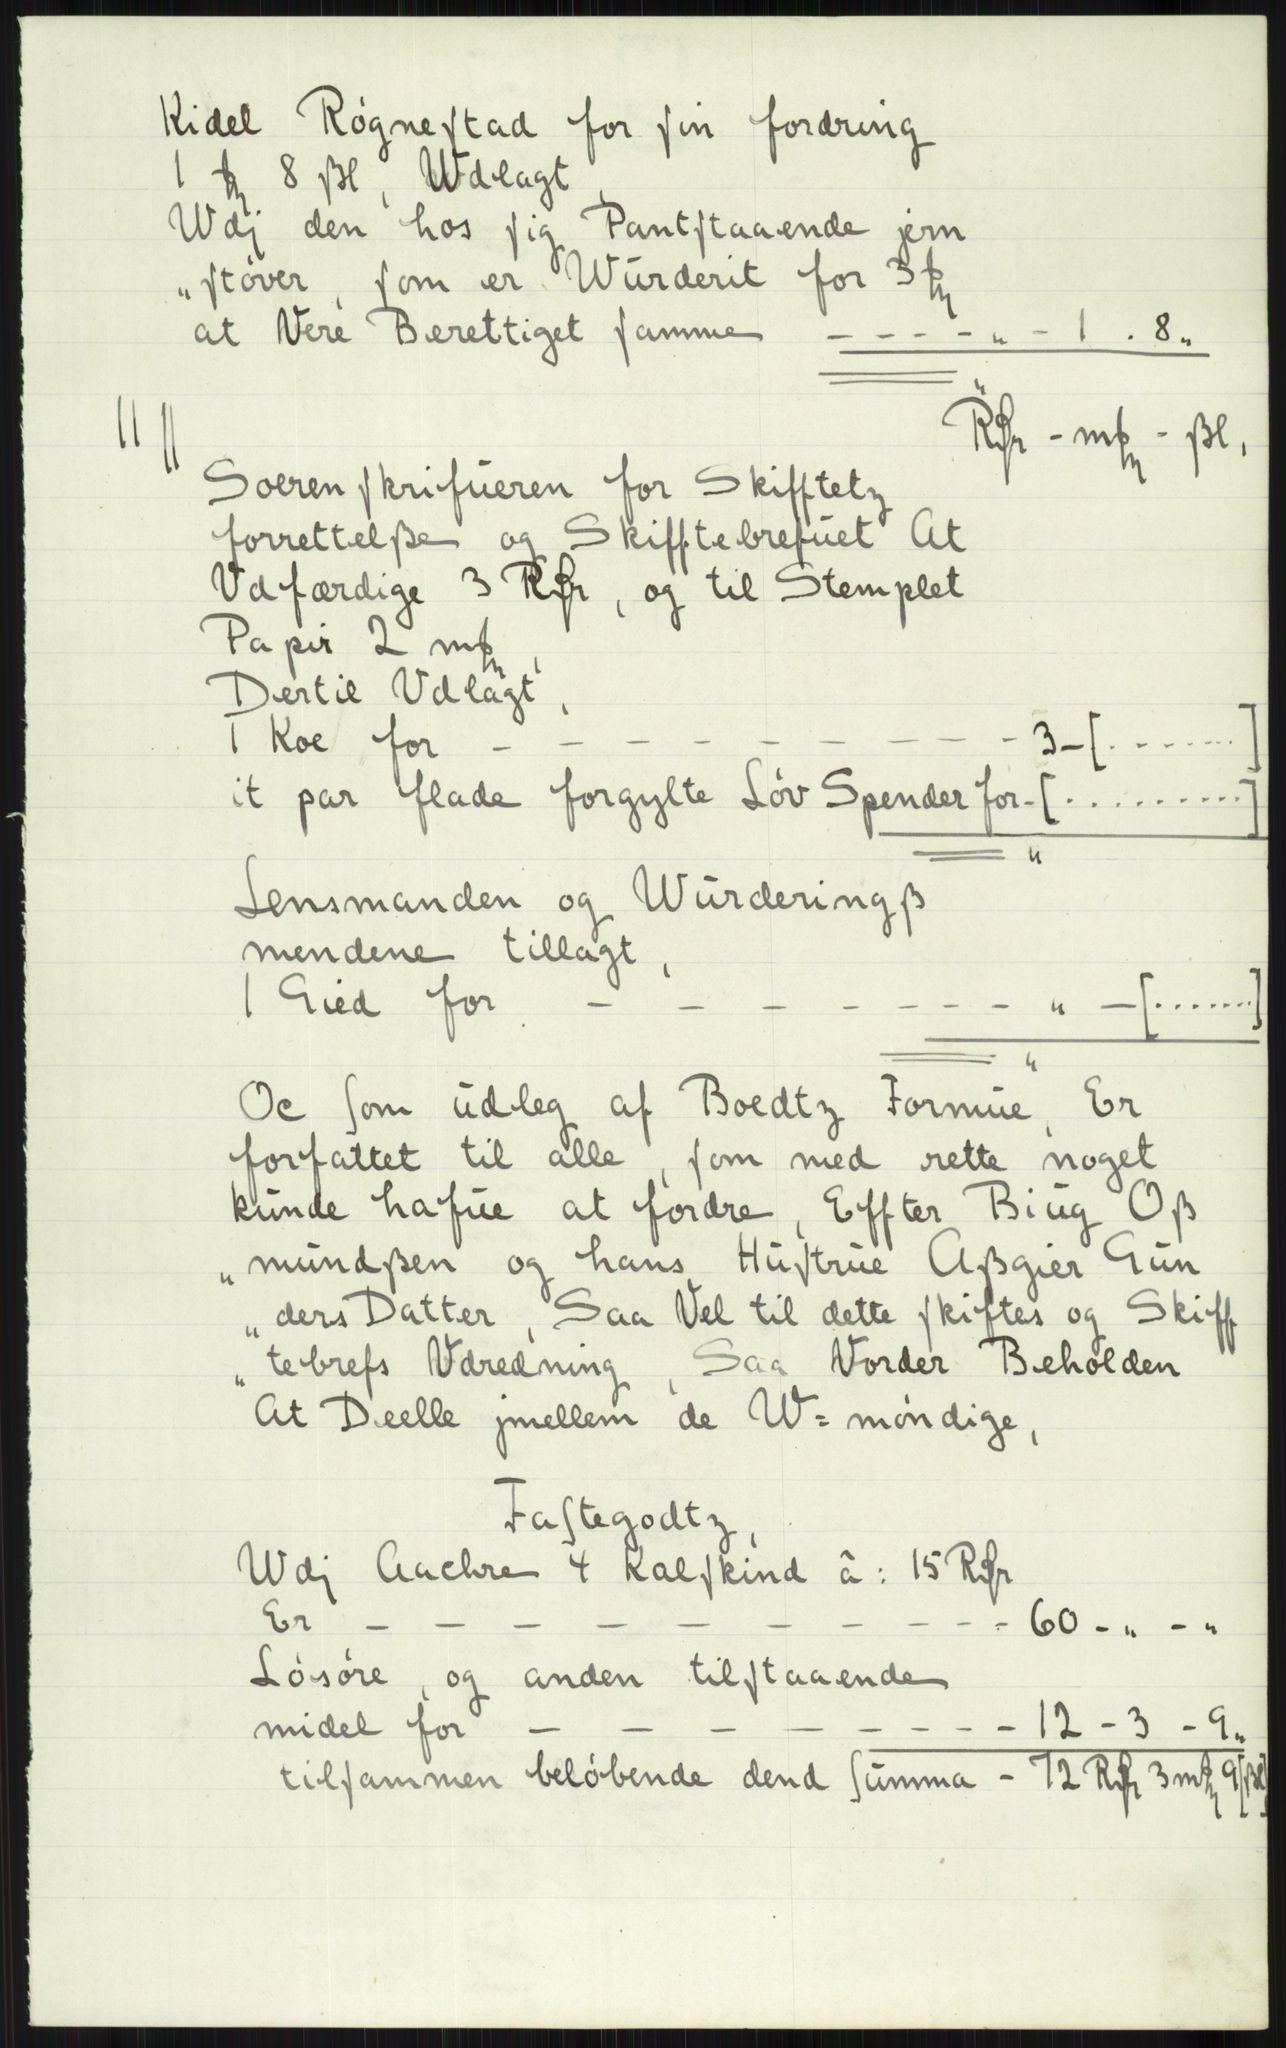 Kidel Røgneſtad for ſin fordring
1 mꝭ 8 ßl, Wdlagt,
Wdj den hos ſig Pantſtaaende jern
„ ſtøver, ſom er Würderit for 3 mꝭ
at Vere Berettiget ſamme – – – – „ – 1 . 8 „
Rdr – mꝭ – ßl,
Soerenſkrifüeren for Skifftetz
forrettelße og Skifftebrefüet At
Vdfærdige 3 Rdr, og til Stemplet
Papir 2 mꝭ,
Dertil Vdlagt,
1 Koe for – – – – – – – – – – 3 – [ . . . . . . . . ]
it par flade forgylte Løv Spender for – [ . . . . . . . . . . ]
„
Lensmanden og Würderingß
mendene tillagt,
1 Gied for – – – – – – – – „ – [ . . . . . . . ]
„
Oc ſom üdleg af Boedtz Formüe, Er
forfattet til alle, ſom med rette noget
künde hafüe at fordre, Effter Biüg Oß
„ mündßen og hans Hüſtrüe Aßgier Gün
„ ders Datter, Saa Vel til dette ſkiftes og Skiff
„ tebrefs Vdredning, Saa Vorder Beholden
At Deelle jmellem de W = møndige,
Faſtegodtz,
Wdj Aachre 4 Kalfſkind â: 15 Rdr
Er – – – – – – – – – – – 60 – „ – „
Løsøre, og anden tilſtaaende
midel for – – – – – – – – – 12 – 3 – 9 „
tilſammen beløbende dend ſümma – 72 Rdr 3 mꝭ 9 [ßl]